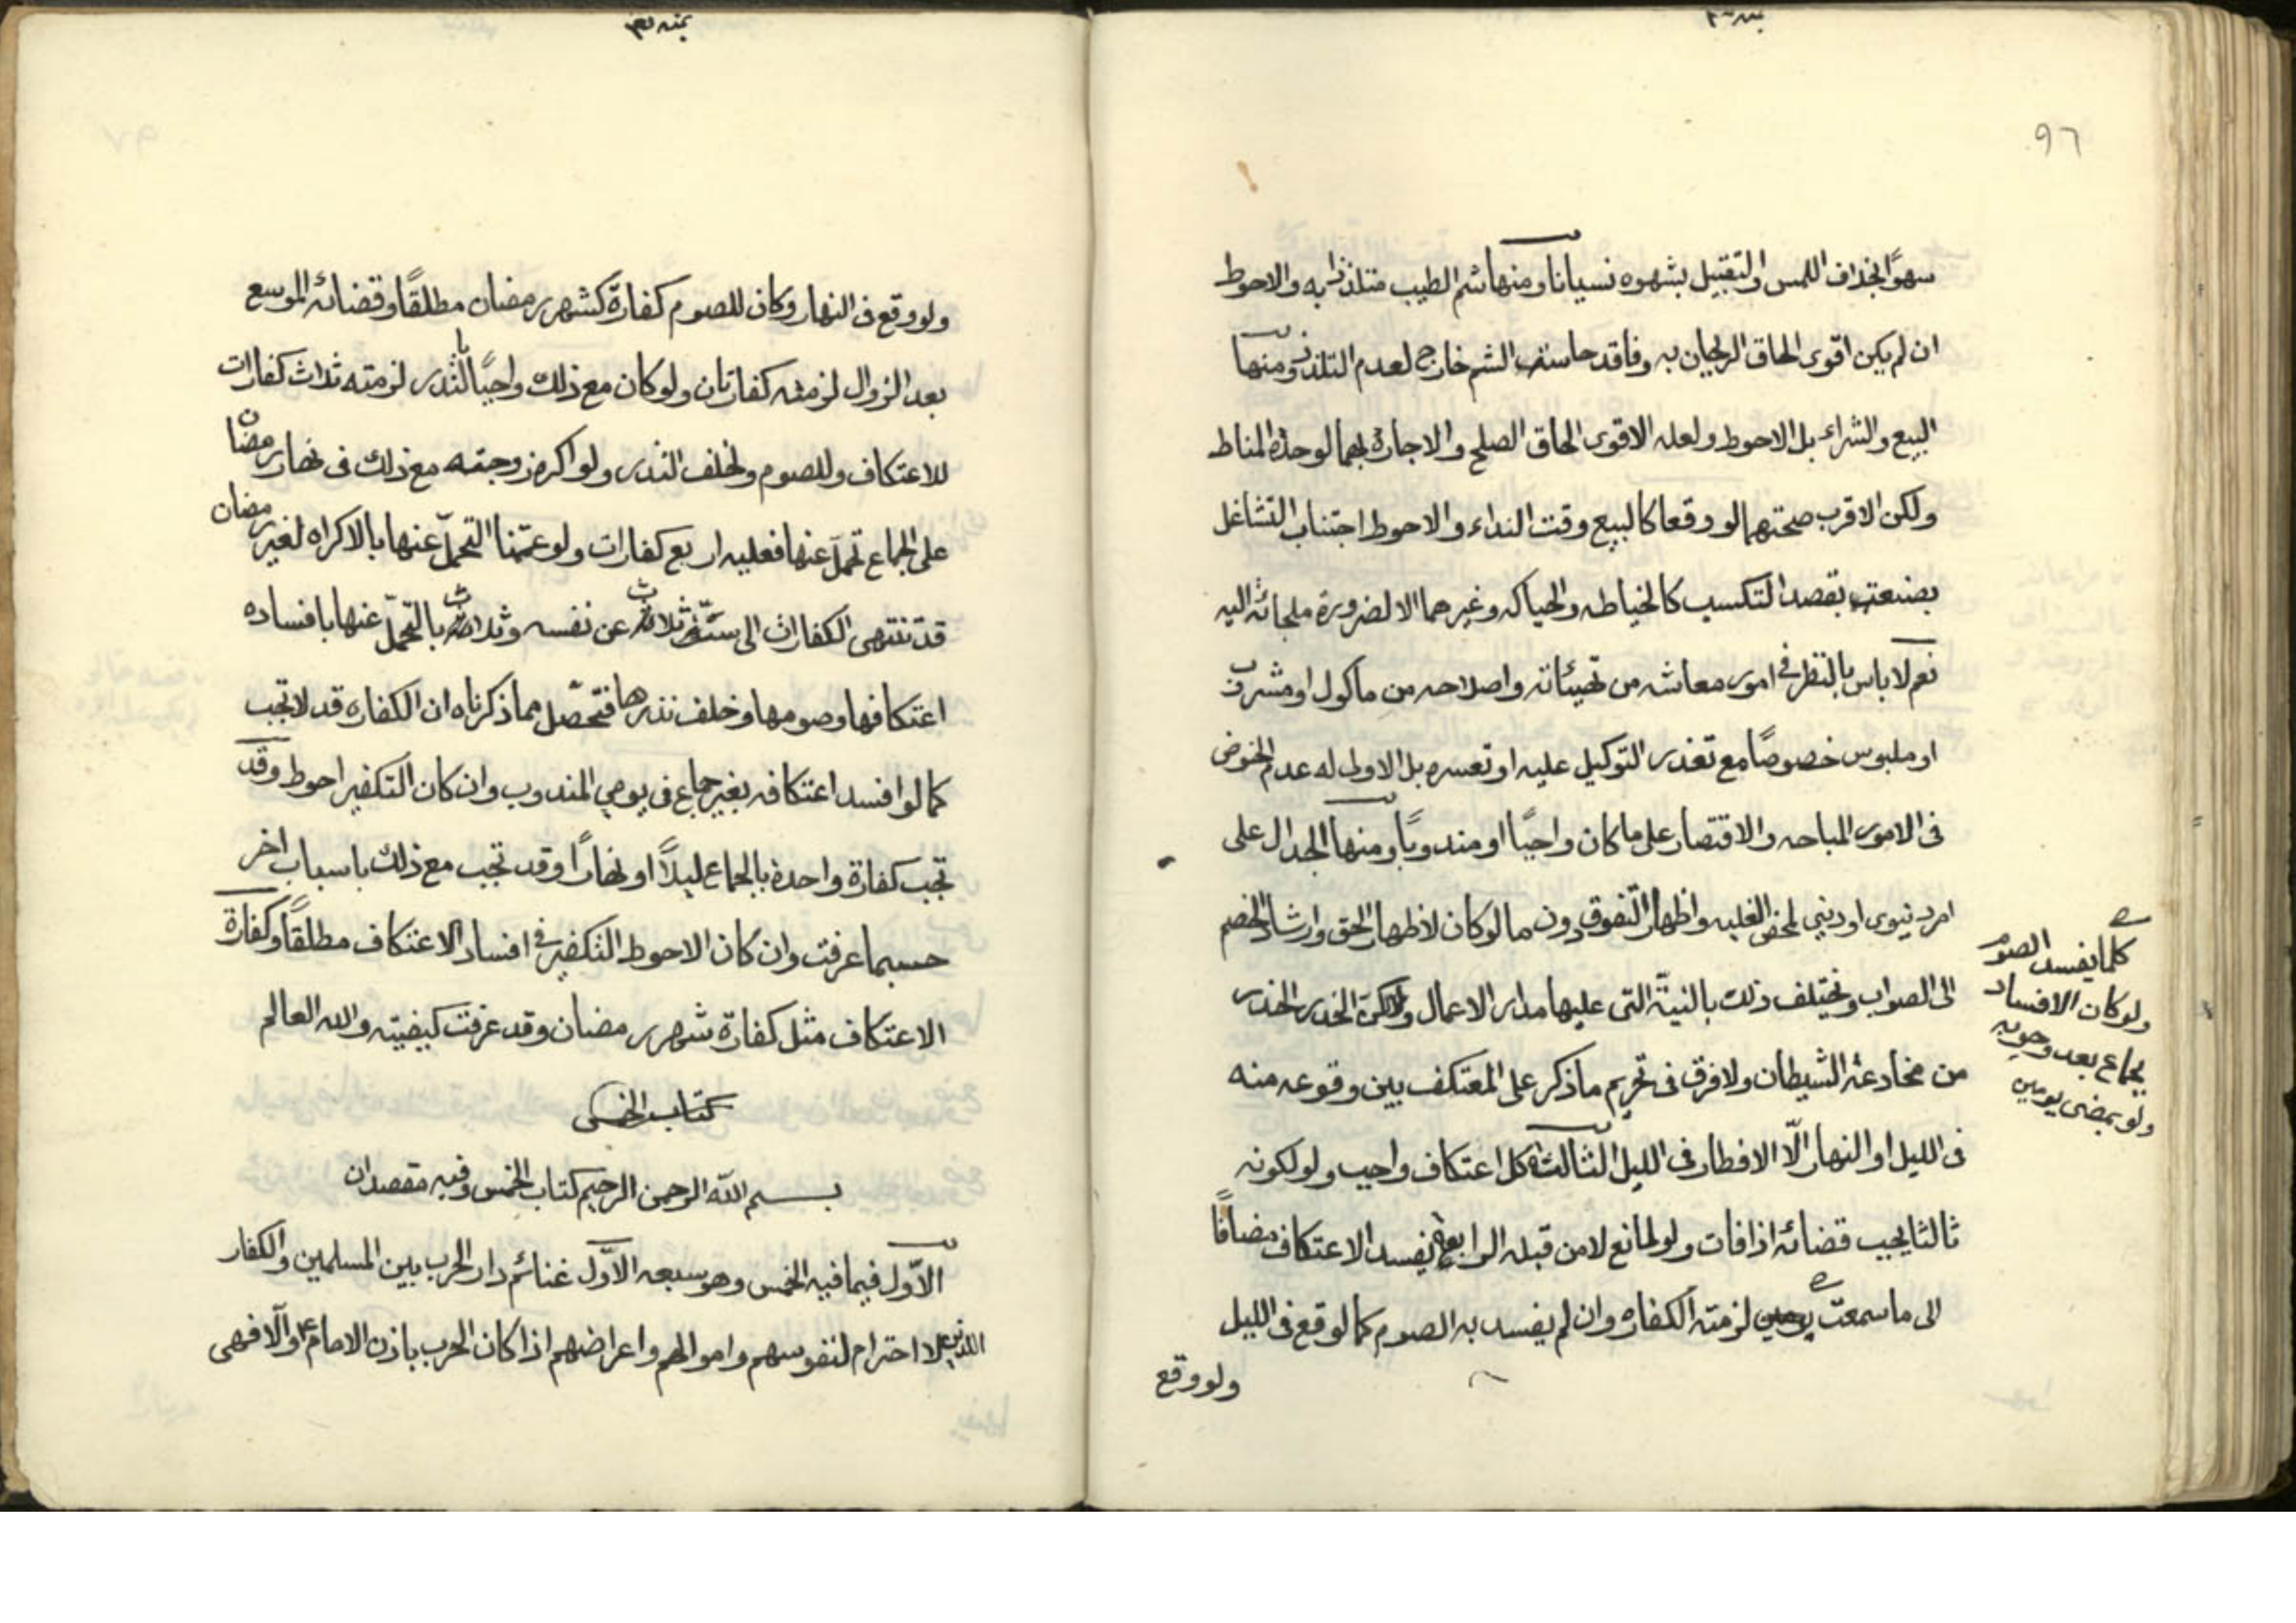 ٩٦
سهوًا بخلاف اللمس والتقبيل بشهوه نسيانا ومنها شم الطيب متلذذا به والاحوط
ان لم يكن اقوى الحاق الريحان به وفاقد حاسته الشم خارج لعدم التلذذ ومنها
البيع والشراء بل الاحوط ولعله الاقوى الحاق الصلح والاجارة بهما لوحدة المناط
ولكن الاقرب صحتهما لو وقعا كالبيع وقت النداء والاحوط اجتناب التشاغل
بصنعته بقصد التكسب كالخياطه والحياكه وغيرهما الا لضرورة ملجائه اليه
نعم لا باس بالنظر في امور معاشه من تهيئاته واصلاحه من ماكول او مشرب
او ملبوس خصوصًا مع تعذر التوكيل عليه او تعسره بل الاولى له عدم الخوض
فى الامور المباحه والاقتصار على ما كان واجبًا او مندوبًا ومنها الجدال على
امر دنيوى او دينى لمحض الغلبه واظهار التفوق دون ما لو كان لاظهار الحق وارشاد الخصم
الى الصواب ويختلف ذلك بالنيّة التى عليها مدار الاعمال ولكن الحذر الحذر
من مخادعة الشيطان ولا فرق فى تحريم ما ذكر على المعتكف بين وقوعه منه
فى الليل او النهار الّا الافطار فى الليل الثالثة كل اعتكاف واجب ولو لكونه
ثالثا يجب قضائه اذا فات ولو لمانع لا من قبله الرابعة يفسد الاعتكاف مضافًا
الى ما سمعت لزمته الكفاره وان لم يفسد به الصوم كما لو وقع فى الليل
ولو وقع
كلما يفسد الصوم
ولو كان الافساد
بجماع بعد وجوبه
ولو بمضى يومين
ولو وقع فى النهار وكان للصوم كفارة كشهر رمضان مطلقًا وقضائه الموسع
بعد الزوال لزمته كفارتان ولو كان مع ذلك واجبًا بالنذر لزمته ثلاث كفارات
للاعتكاف وللصوم ولخلف النذر ولو اكره زوجته مع ذلك فى نهار رمضان
على الجماع تحمّل عنها فعليه اربع كفارات ولو عمّمنا التحمّل عنها بالاكراه لغير رمضان
قد تنتهى الكفارات الى ستّ ثلاث عن نفسه وثلاث بالتحمّل عنها بافساده
اعتكافها وصومها وخلف نذرها فتحصّل مما ذكرناه ان الكفاره قد لا تجب
كما لو افسد اعتكافه بغير جماع فى يومي المندوب وان كان التكفير احوط وقد
تجب كفارة واحدة بالجماع ليلًا او نهارًا وقد تجب مع ذلك باسباب اخر
حسبما عرفت وان كان الاحوط التكفير فى افساد الاعتكاف مطلقًا وكفارة
الاعتكاف مثل كفارة شهر رمضان وقد عرفت كيفيته والله العالم
كتاب الخمس
بسم الله الرحمن الرحيم كتاب الخمس وفيه مقصدان
الاوّل فيما فيه الخمس وهو سبعه الاوّل غنائم دار الحرب بين المسلمين والكفار
الذين لا احترام لنفوسهم واموالهم واعراضهم اذا كان الحرب باذن الامام ع والّا فهى